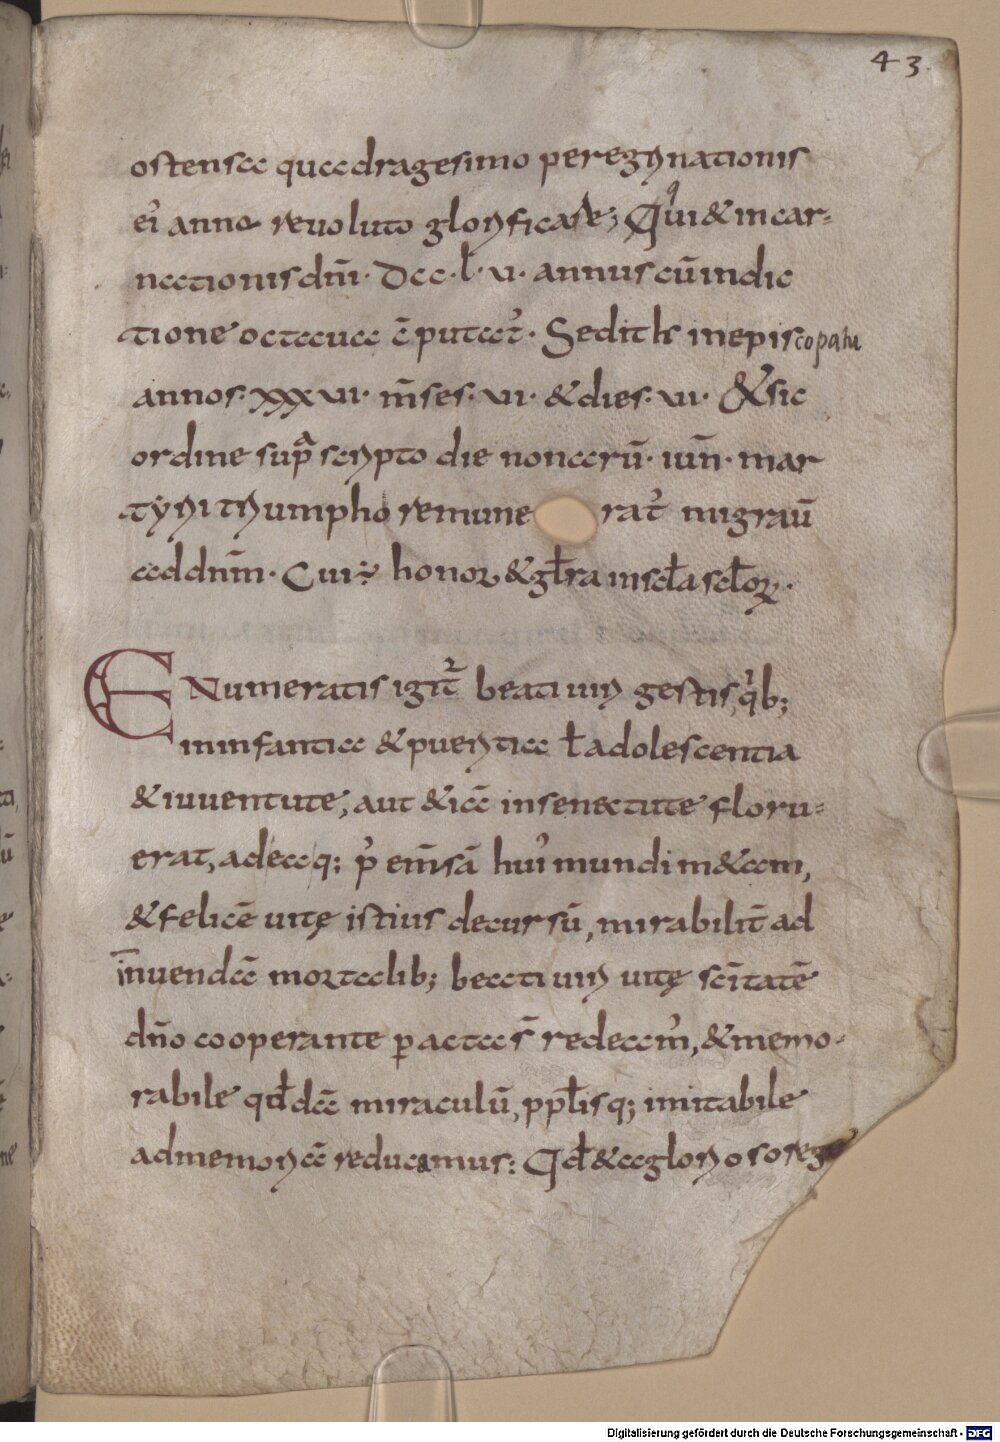 43.
ostensa quadragesimo peregrinationis
ei' anno revoluto glorificare; Qui & incar-
nationis dnī. Dcc. l. v. annus cū indic
tione octava cōputat'. Sedit hic in episcopatu
annos. xxxvi. m̄ses. vii. & dies. vii. & sic
ordine suprascripto die nonarū. iun̄. mar
tyrii triumpho remune rat' migravit
ad dn̄m. Cui; honor & gl̄ra in scl̄a scl̄oꝝ.
Enumeratis igit' beati viri gestis, qib;
in infantia & pueritia ł adolescentia
& iuventute, aut & iā in senectute floru-
erat, adeaq; p' em̄sā hui' mundi m&am,
& felicē vitę istius decursū, mirabilit̄ ad
invendā mortalib; beati viri vitę sc̄itatē
dn̄o cooperante ꝑacta redeam', & memo-
rabile qđdā miraculū, ppl̄isq; imitabile
ad memoriā reducamus: Qđ & a glorioso rege
Digitalisierung gefördert durch die Deutsche Forschungsgemeinschaft - DFG